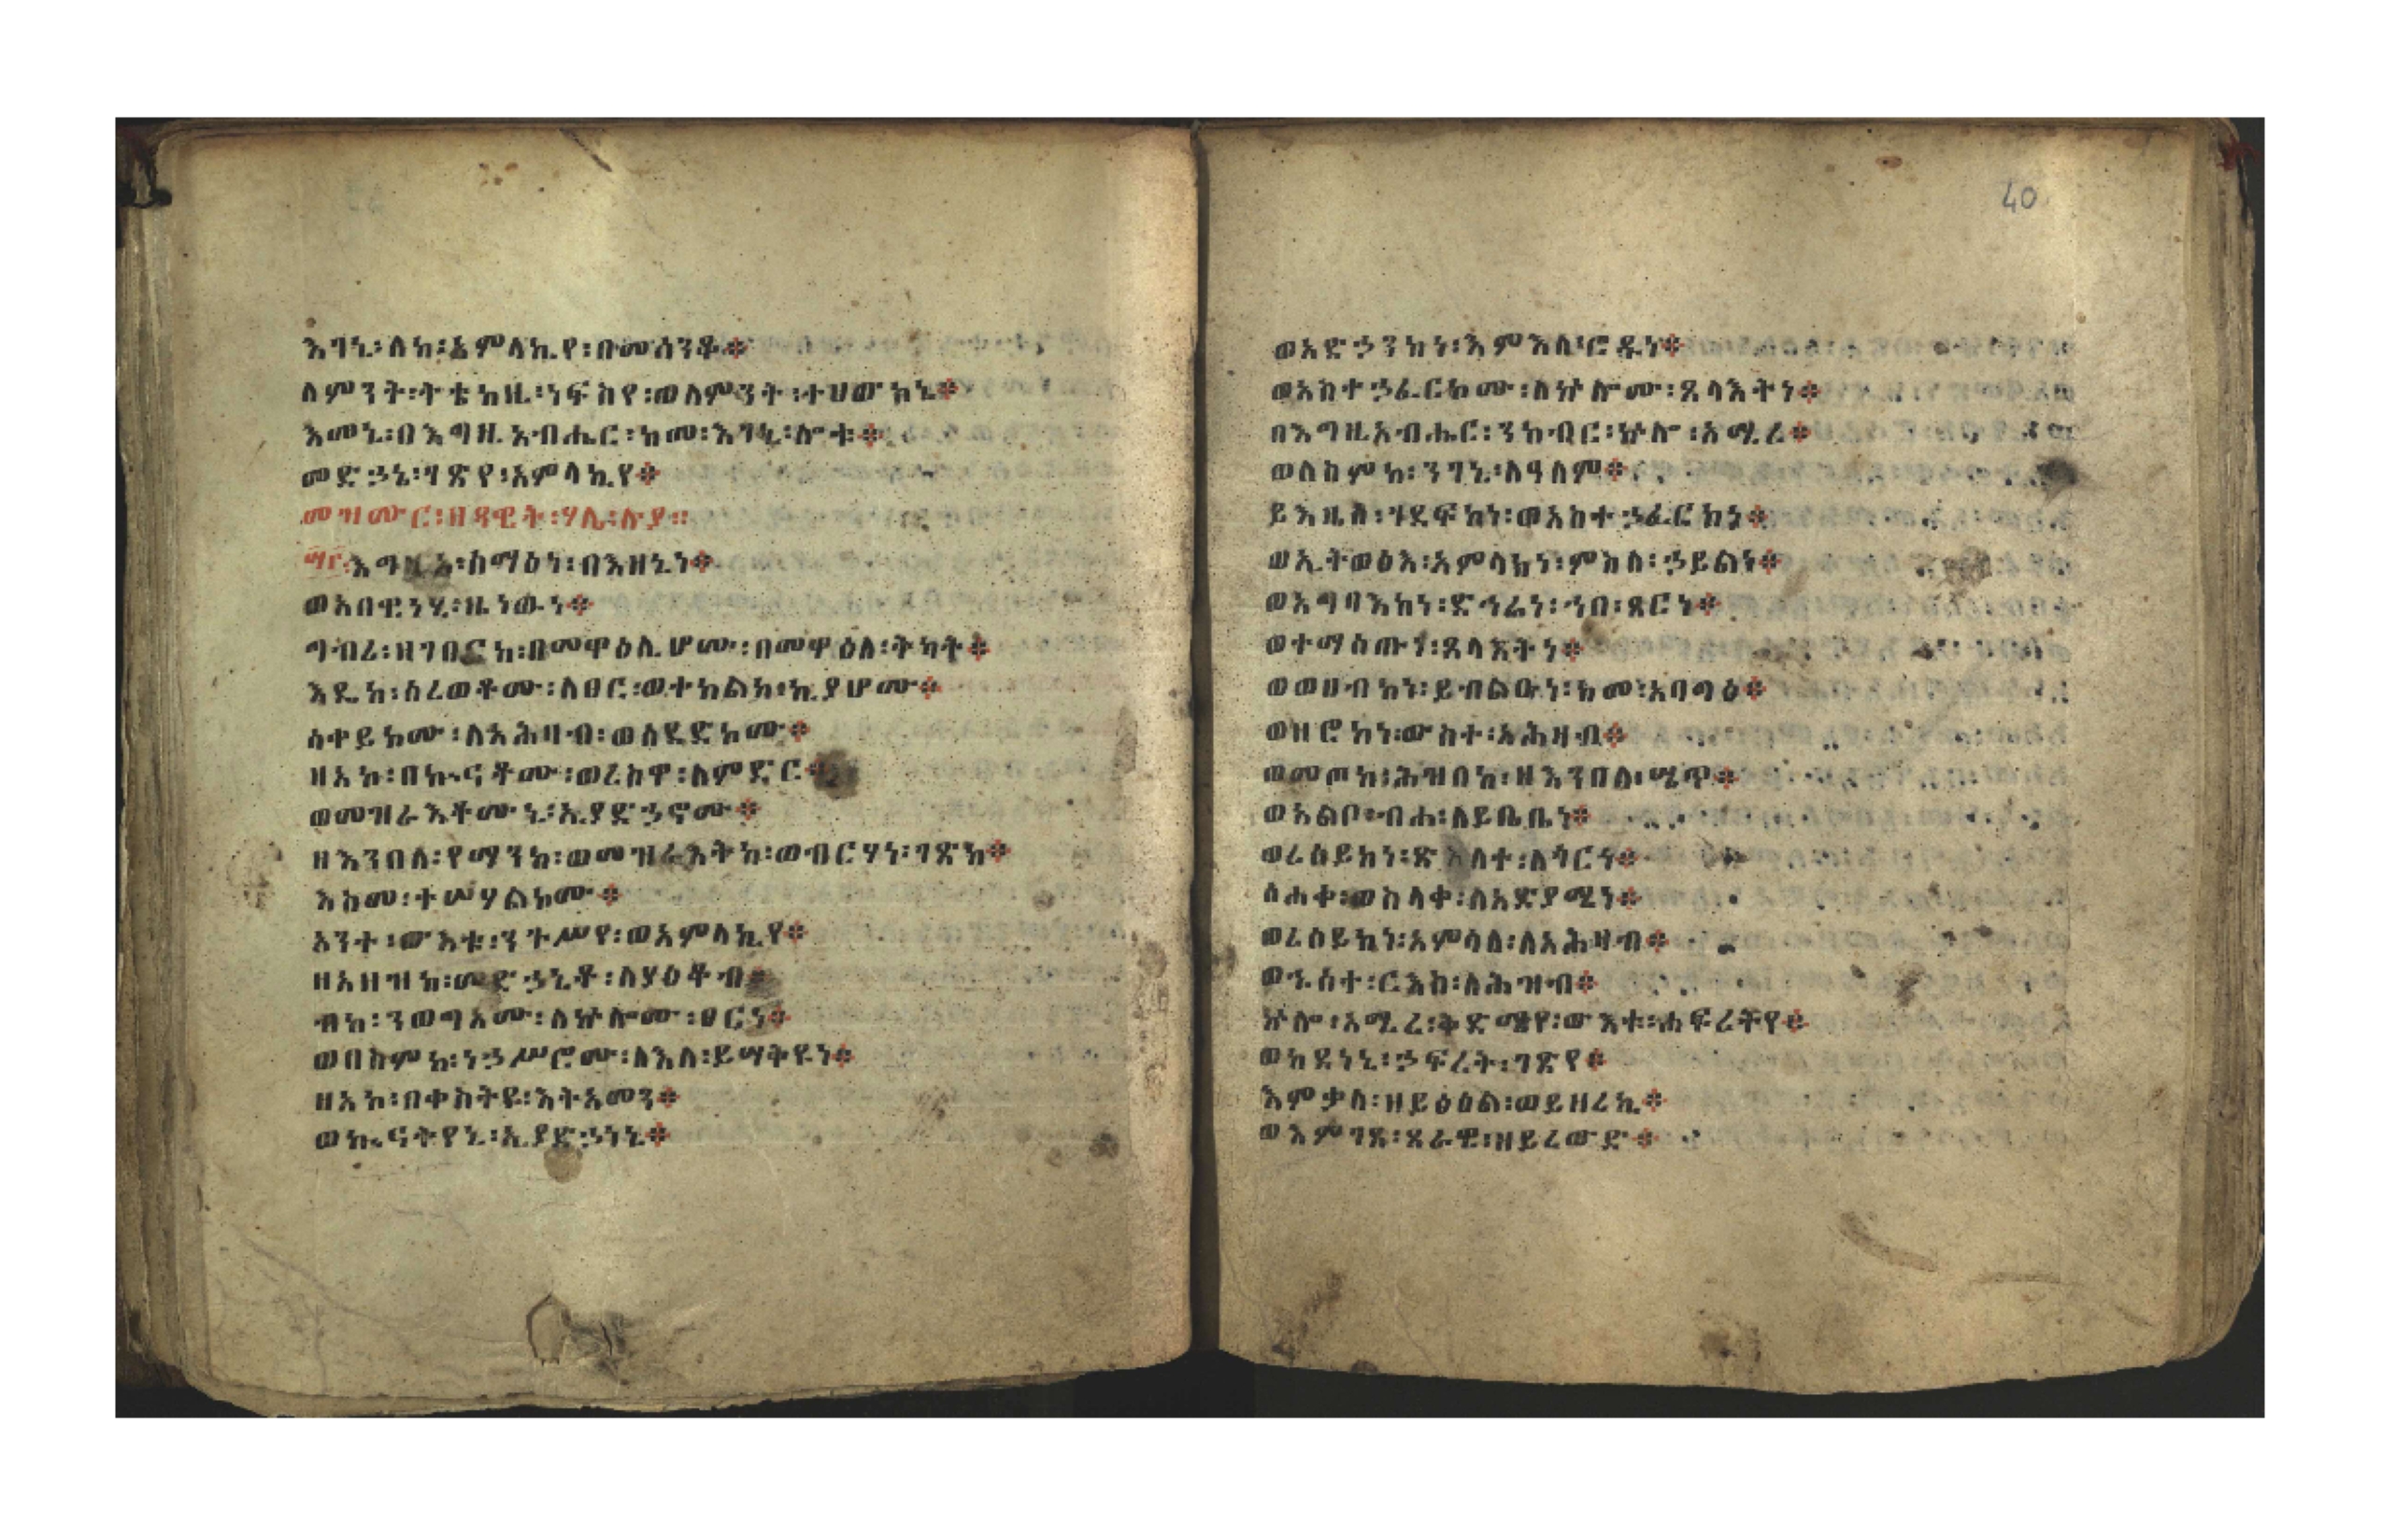 እገኒ፡ለከ፡አምላኪየ፡በመሰንቆ፨
ለምንት፡ትቴክዚ፡ነፍስየ፡ወለምንት፡ተሀውክኒ፨
እመኒ፡በእግዚአብሔር፡ከመ፡እገኒ፡ሎቱ፨
መድኃኔ፡ገጽየ፡አምላኪየ፨
መዝሙር፡ዘዳዊት፡ሃሌ፡ሉያ።
እግዚኦ፡ሰማዕነ፡በእዘኒነ፨
ወአበዊነሂ፡ዜነውነ፨
ግብረ፡ዘገበርከ፡በመዋዕሊሆሙ፡በመዋዕለ፡ትካት፨
እዴከ፡ሰረወቶሙ፡ለፀር፡ወተከልከ፡ኪያሆሙ፨
ሳቀይኮሙ፡ለአሕዛብ፡ወሰደድኮሙ፨
ዘአኮ፡በኲናቶሙ፡ወረስዋ፡ለምድር፨
ወመዝራእቶሙኒ፡ኢያድኃኖሙ፨
ዘእንበለ፡የማንከ፡ወመዝራእትከ፡ወብርሃነ፡ገጽከ፨
እስመ፡ተሣሃልኮሙ፨
አንተ፡ውእቱ፡ንጉሥየ፡ወአምላኪየ፨
ዘአዘዝከ፡መድኃኒቶ፡ለያዕቆብ፨
ብከ፡ንወግኦሙ፡ለኵሎሙ፡ፀርነ፨
ወበስምከ፡ነኃሥሮሙ፡ለእለ፡ይማቅዩነ፨
ዘአኮ፡በቀስትየ፡እትአመን፨
ወኲናትየኒ፡ኢያድኃነኒ፨
40
ወአድኃንከነ፡እምእለ፡ሮዱነ፨
ወአስተኃፈርኮሙ፡ለኵሎሙ፡ጸላእትነ፨
በእግዚአብሔር፡ንከብር፡ኵሎ፡አሚረ፨
ወለስምከ፡ንገኒ፡ለዓለም፨
ይእዜሰ፡ገደፍከነ፡ወአስተኃፈርከነ፨
ወኢትወፅእ፡አምላክነ፡ምስለ፡ኃይልነ፨
ወአግባእከነ፡ድኅሬነ፡ኀበ፡ጸርነ፨
ወተማሰጡነ፡ጸላእትነ፨
ወወሀብከነ፡ይብልዑነ፡ከመ፡አባግዕ፨
ወዘሮከነ፡ውስተ፡አሕዛብ፨
ወመጦከ፡ሕዝበከ፡ዘእንበለ፡ሤጥ፨
ወአልቦ፡ብሐ፡ለይቤቤነ፨
ወረሰይከነ፡ጽእለተ፡ለጎርነ፨
ስሐቀ፡ወስላቀ፡ለአድያሚነ፨
ወረሰይከነ፡አምሳለ፡ለአሕዛብ፨
ወኁስተ፡ርእስ፡ለሕዝብ፨
ኵሎ፡አሚረ፡ቅድሜየ፡ውእቱ፡ሐፍረትየ፨
ወከደነኒ፡ኃፍረት፡ገጽየ፨
እምቃለ፡ዘይፅዕል፡ወይዘረኪ፨
ወእምገጸ፡ጸራዊ፡ዘይረውድ፨